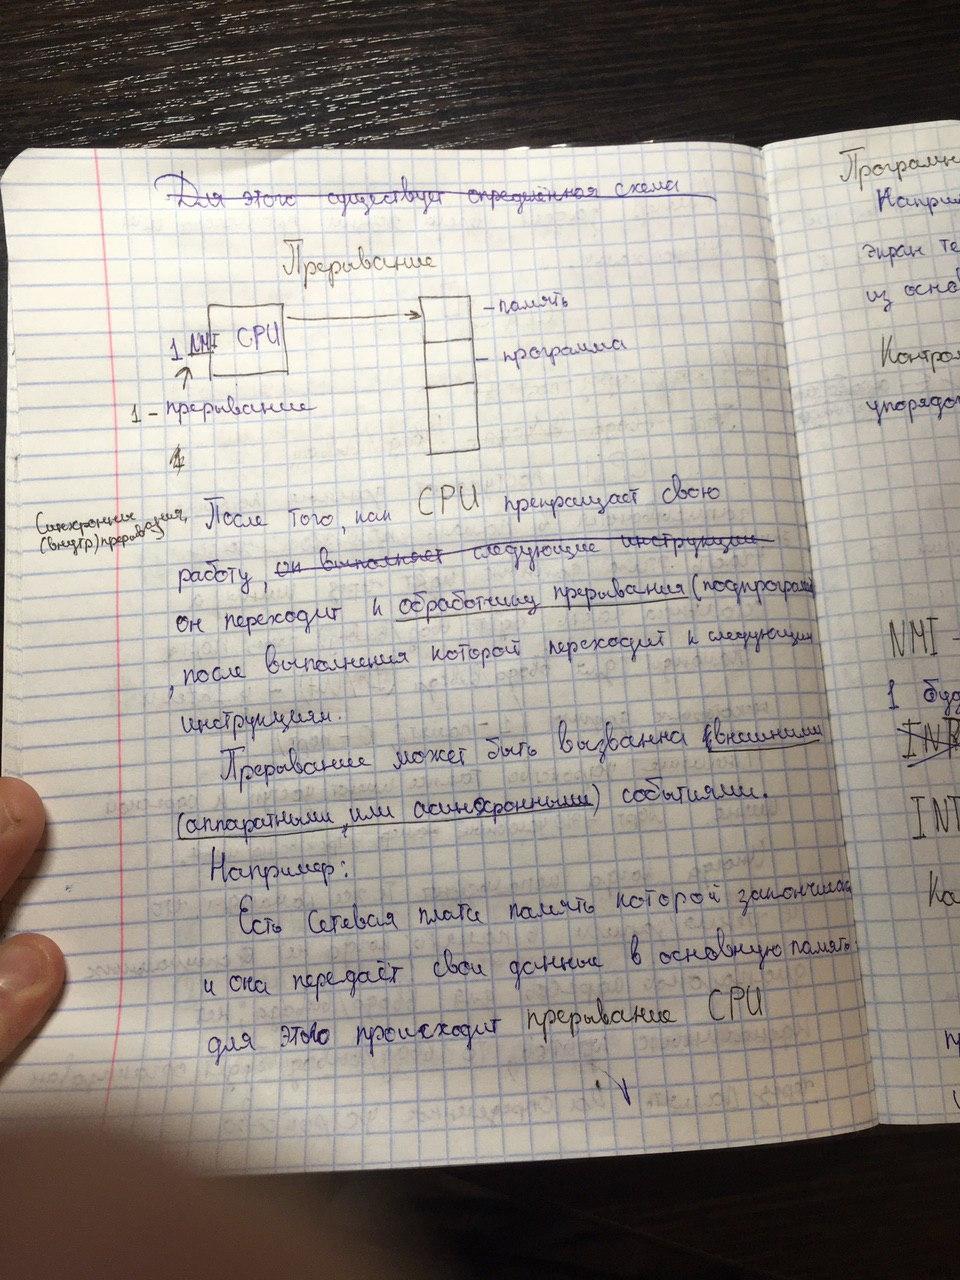 Для этого существует определённая схема
Прерывание
- память
1 NMI CPU
- программа
1 - прерывание
После того, как CPU прекращает свою
Синхронные
(внутр) прерывания,
работу, он выполняет следующие инструкции
он переходит к обработчику прерывания (подпрограм
, после выполнения которой переходит к следующим
инструкциям.
Прерывание может быть вызванна (внешними
(аппаратными, или асинхронными) событиями.
Например:
Есть Сетевая плата память которой закончилась
и она передаёт свои данные в основную память
для этого происходит прерывание CPU
Програмн
Напри
экран те
из осно
Контрол
упорядо
NMI -
1 буд
INT